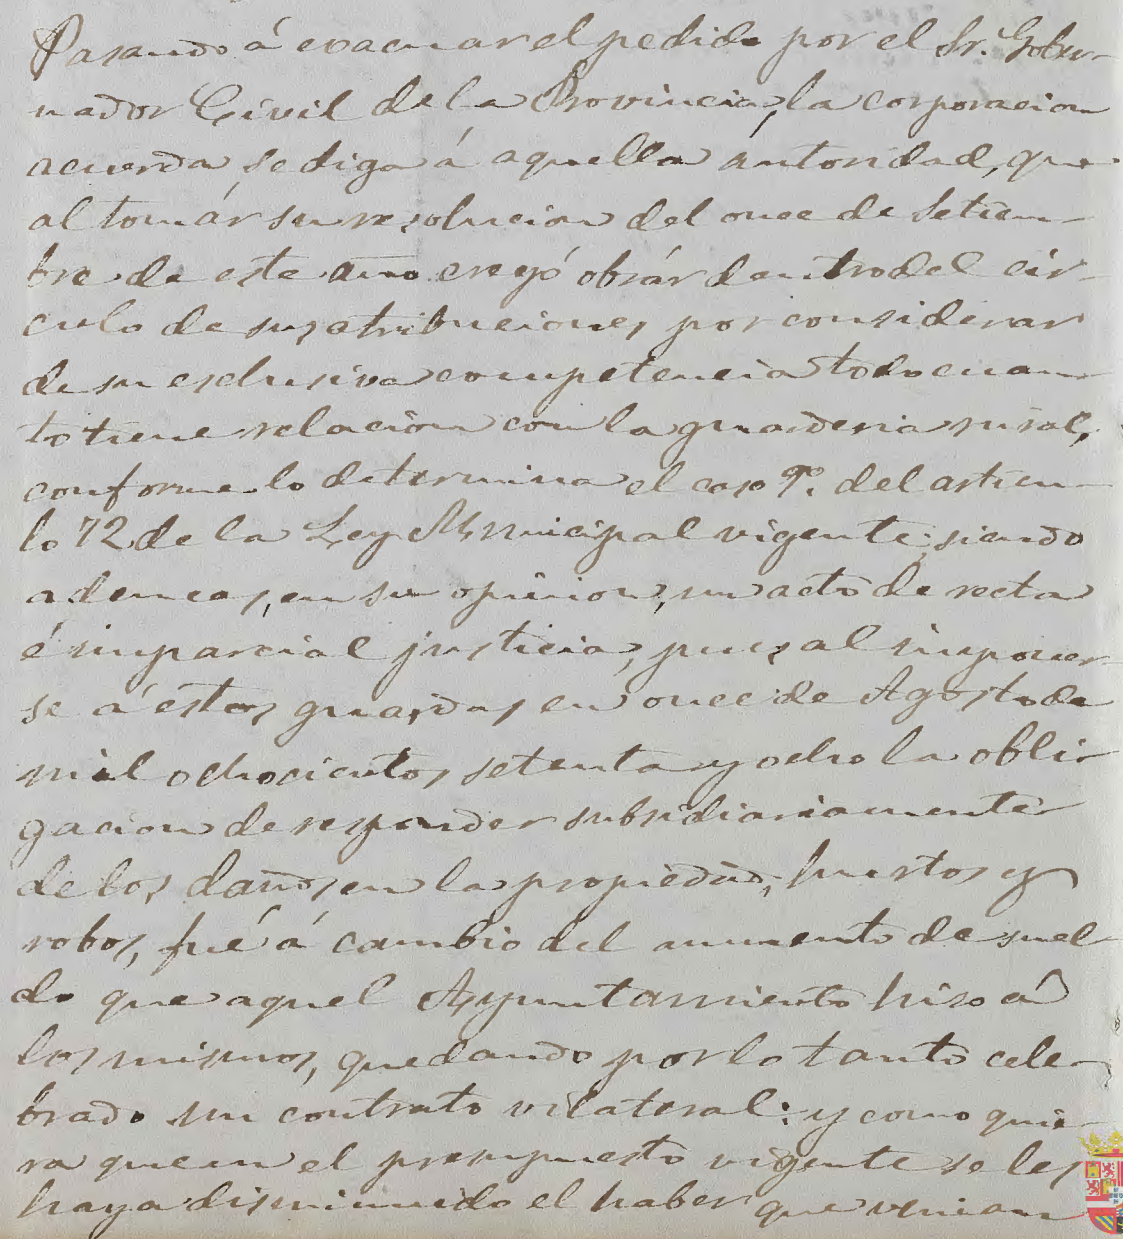 Pasando á evacuar el pedido por el Sr. Gober-
nador Civil de la Provincia, la corporacion
acuerda se diga á aquella autoridad, que
al tomár su resolucion del once de Setiem-
bre de este año creyó obrár dentro del cír-
culo de sus atribuciones por considerar
de su esclusiva competencia todo cuan-
to tiene relacion con la guarderia rural,
conforme lo determina el caso 9º. del artícu-
lo 72 de la Ley Municipal vigente; siendo
ademas, en su opinion, un acto de recta
é imparcial justicia, pues al imponer-
se á éstos guardas en once de Agosto de
mil ochocientos setenta y ocho la obli-
gacion de responder subsidiariamente
de los daños en la propiedad, hurtos y
robos, fué á cambio del aumento de suel-
do que aquel Ayuntamiento hiso á
los mismos, quedando por lo tanto cele-
brado un contrato vilateral: y como quie-
ra que en el presupuesto vigente se les
haya disminuido el haber que venian